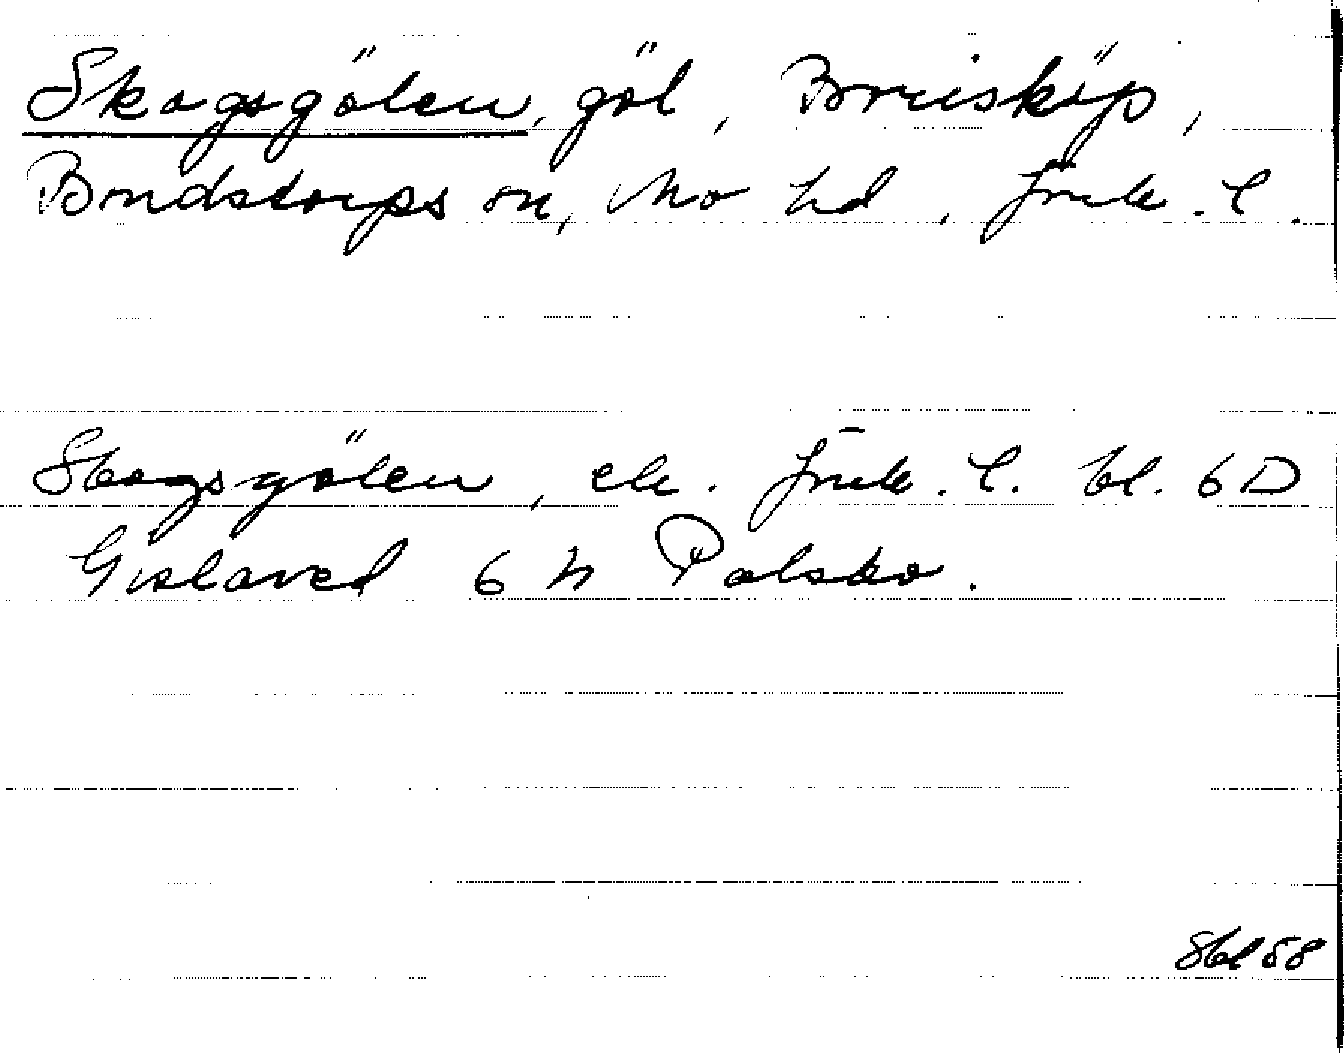 Skogsgölen, göl, Boriisköp,
Bondstorps sn, Mo hd, Jönk. l.
Skogsgölen, ek. Jönk. l. bl. 6D
Gislaved 6 h Palsbo.
Skbl 58